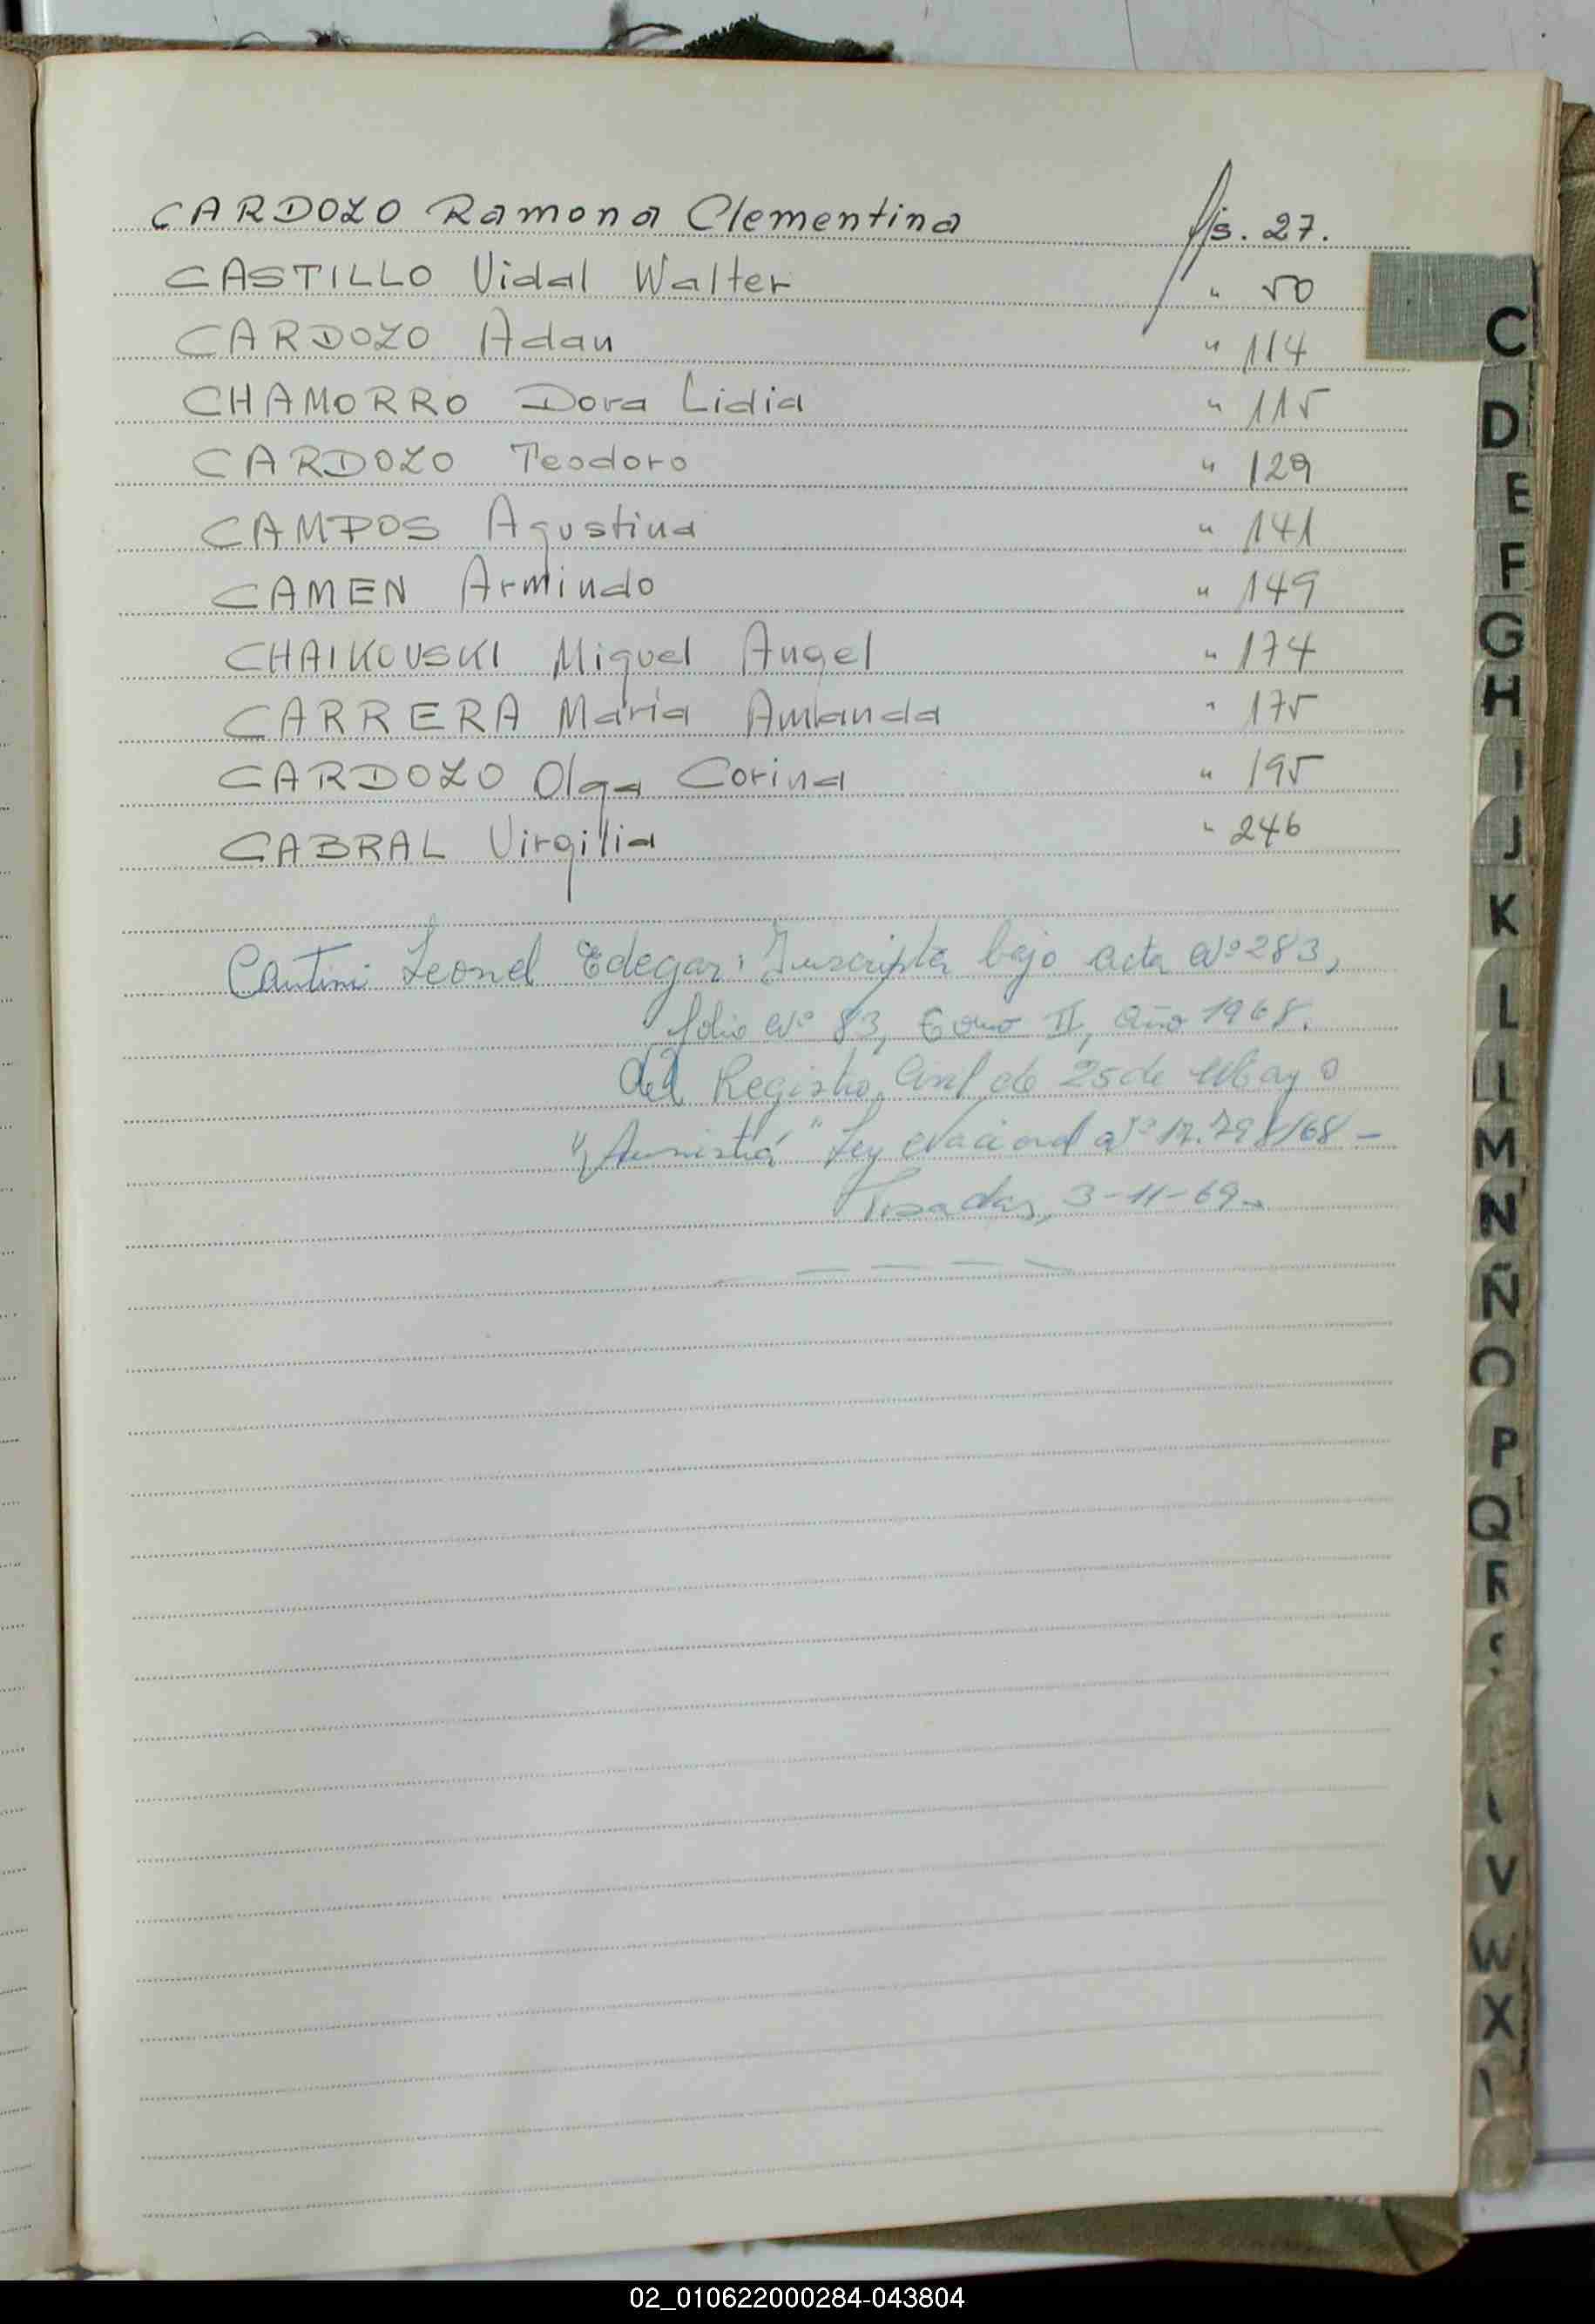 CARDOZO Ramona Clementina fjs. 27.
CASTILLO Vidal Walter " 50
CARDOZO Adan " 114
CHAMORRO Dora Lidia " 115
CARDOZO Teodoro " 129
CAMPOS Agustina " 141
CAMEN Armindo " 149
CHAIKOVSKI Miguel Angel " 174
CARRERA María Amanda " 175
CARDOZO Olga Corina " 195
CABRAL Virgilia " 246
Cantini Leonel Edegar: Inscripta bajo acta Nº 283,
folio Nº 83, Tomo II, año 1968.
del Registro Civil de 25 de Mayo
"Amnistía" Ley Nacional Nº 17.798/68 -
Posadas, 3-11-69.-
C
D
E
F
G
H
I
J
K
L
M
N
Ñ
O
P
Q
R
S
V
W
X
02_010622000284-043804